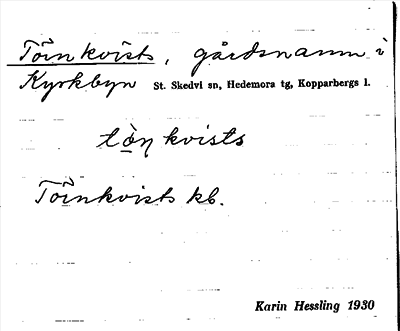 Töinkvists, gårdsnamn i
Kyrkbyn St. Skedvi sn, Hedemora tg, Kopparbergs l.
tö̀ŋkvists
Töinkvists kb.
Karin Hessling 1930